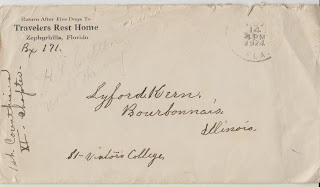 Return After Five Days To
Travelers Rest Home
Zephyrhills, Florida
Bx 171.
14
4 PM
1924
FLA.
Lyford Kern.
Bourbonnais.
Illinois.
St- Viators College.